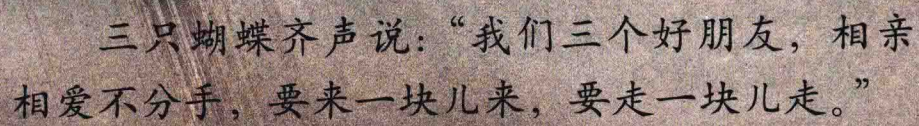 三只蝴蝶齐声说：“我们三个好朋友，相亲
相爱不分手，要来一块儿来，要走一块儿走。”